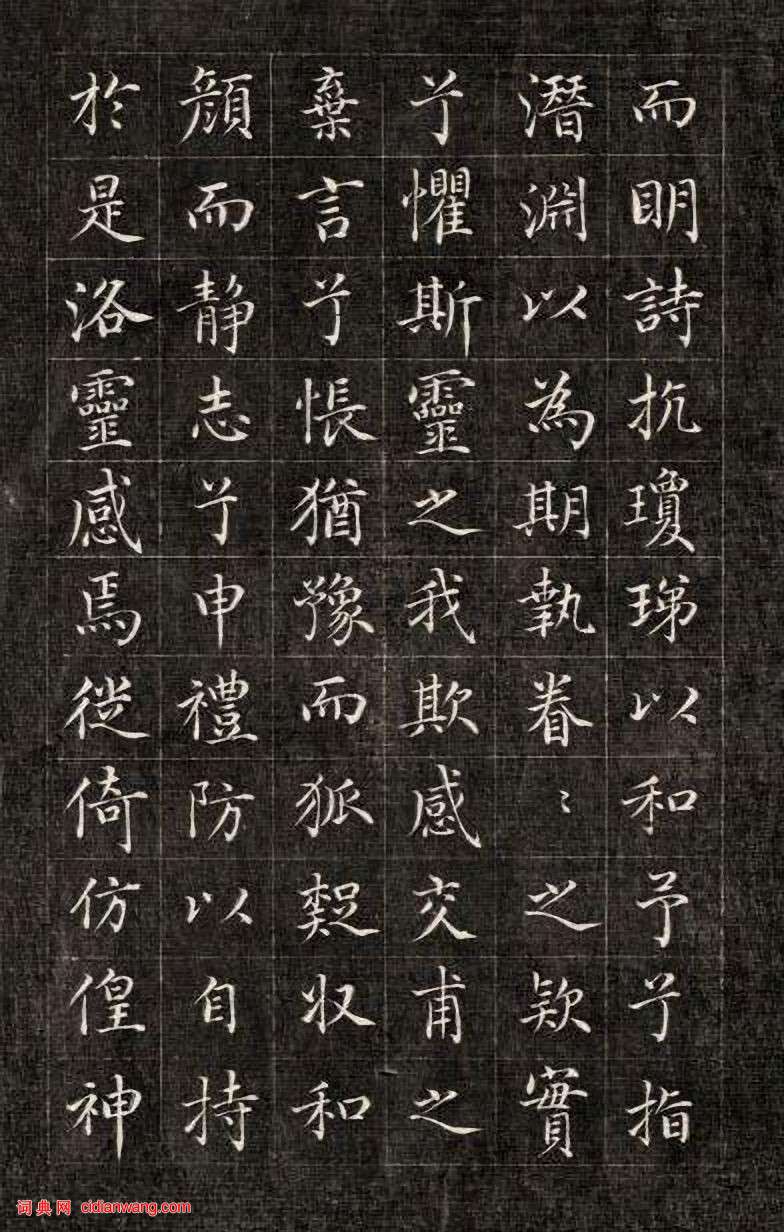 而明詩抗瓊珶以和予兮指
潛淵以為期執眷〻之款實
兮懼斯靈之我欺感交甫之
棄言兮悵猶豫而狐疑収和
顔而静志兮申禮防以自持
於是洛靈感焉徙倚仿偟神
词典网 cidianwang.com